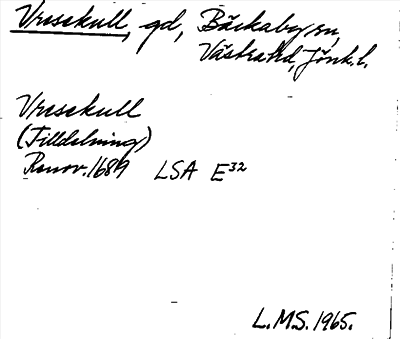 Vresekull, gd, Bäckaby sn,
Västra hd, Jönk.l.
Vresekull
(Tilldelning)
Renov. 1689 LSA E32
L.M.S. 1965.